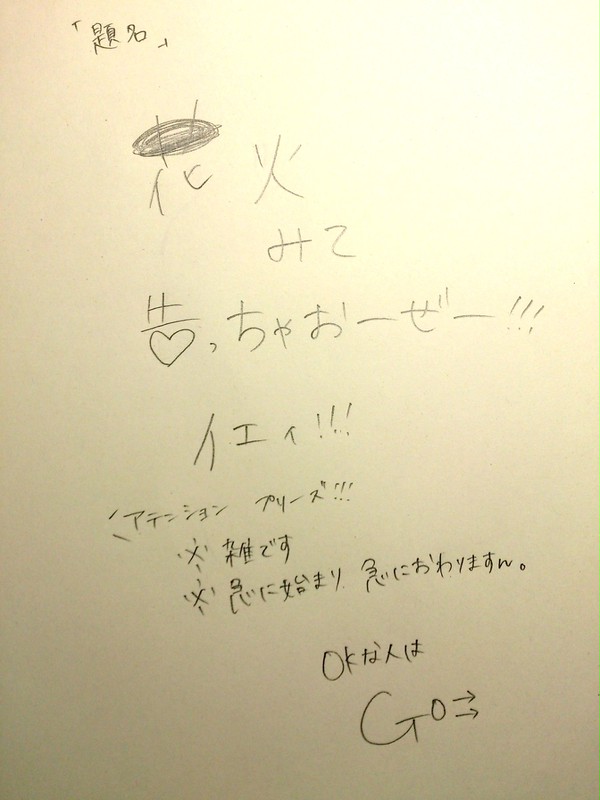 「題名」
花火
みて
告っちゃおーぜー!!!
イエィ!!!
アテンション プリーズ!!!
※ 雑です
※ 急に始まり 急におわりますん。
OKな人は
GO⇉